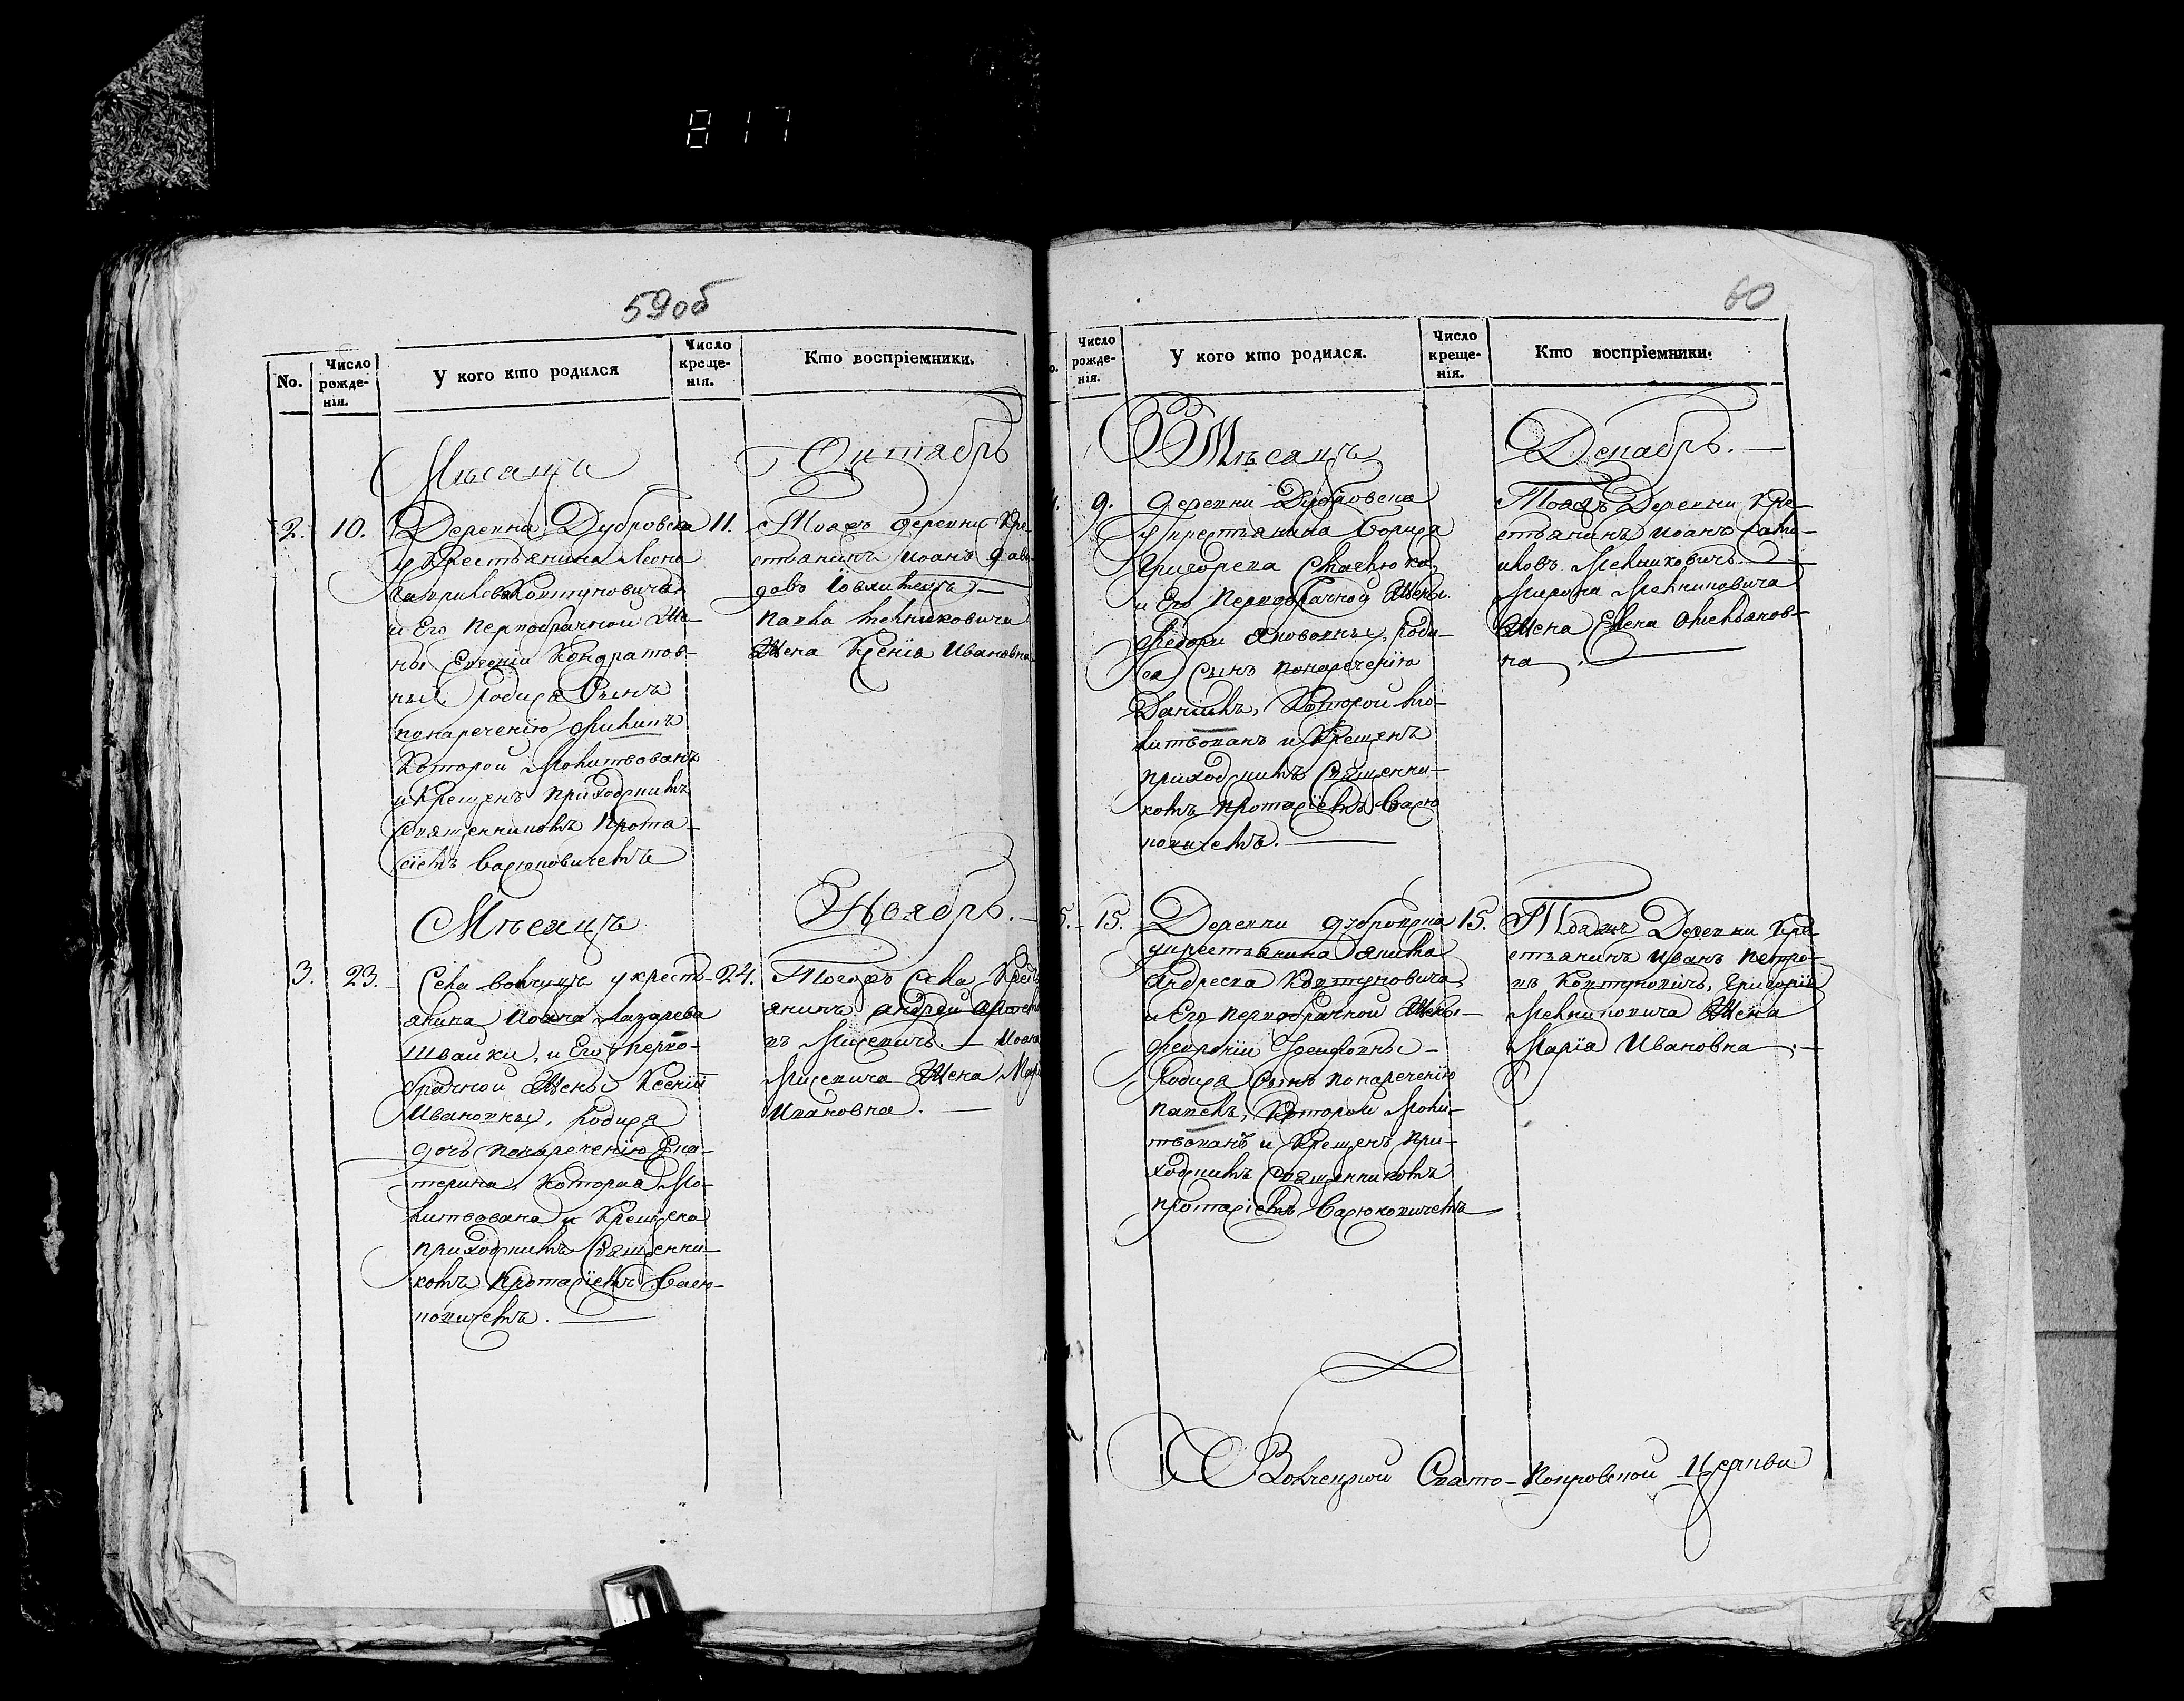 817
59об
No.
Число рожде-нія.
У кого кто родился
Число креще-нія.
Кто воспріемники.
Мѣсяцъ
Октябръ
2. 10.
Деревни Дубровска
у Крестьянина Леона
Коптуновича
и Его Первобрачной Же-
ны Евгеніи Кондратов-
ны. Родился Сынъ
понаречению
Которой Молитвованъ
и Крещенъ Приходскимъ
Священникомъ Прота-
сіемъ Васюковичемъ
11.
Тояжъ деревни Кре-
стьянинъ Иоанъ Дави-
довъ
Павла Мельниковича
Жена Ксенія Ивановна
Мѣсяцъ
Ноябрь.
3. 23.
Села Волчицъ у крестъ-
янина Иоана Лазарева
Швайки, и Его перво-
брачной Жены Ксеніи
Ивановны, родилася
дочь понаречению Ека-
терина, Которая Мо-
литвована и Крещена
приходскимъ Священни-
комъ Протасіемъ Васю-
ковичемъ.
24.
Тогожъ Села Крестъ
янинъ Андрей
въ Мисевичъ. — Иоана
Мисевича Жена
Ивановна.
60
Число рожде-нія.
У кого кто родился.
Число креще-нія.
Кто воспріемники.
Мѣсяцъ
Декабрь.
9.
деревни Дубровска
у крестьянина Бориса
Григорева Стасюка,
и Его Первобрачной Жены
Федоры Яковвны, роди-
ся Сынъ понаречению
Даніилъ, Которой мо-
литвованъ и Крещенъ
приходскимъ Священни-
комъ Протасіемъ Васю
ковичемъ.
Тояжъ Деревни Кре-
стьянинъ Иоанъ
Мельниковичъ.
Мирона Мельниковича
Жена Елена Омельянов-
на.
5. 15.
Деревни Дубровска
у крестьянина
Андреева Коптуновича,
и Его Первобрачной Жены
Февроніи
Родился Сынъ понаречению
Павелъ, Которой Моли-
твованъ и Крещенъ При-
ходскимъ Священникомъ
Протасіемъ Васюковичемъ
15.
Тояжъ Деревни Кре-
стьянинъ Иванъ Петро-
въ Коптуновичъ, Григорія
Мельниковича Жена
Марія Ивановна.
Волчецкой Свято-Покровской Церкви